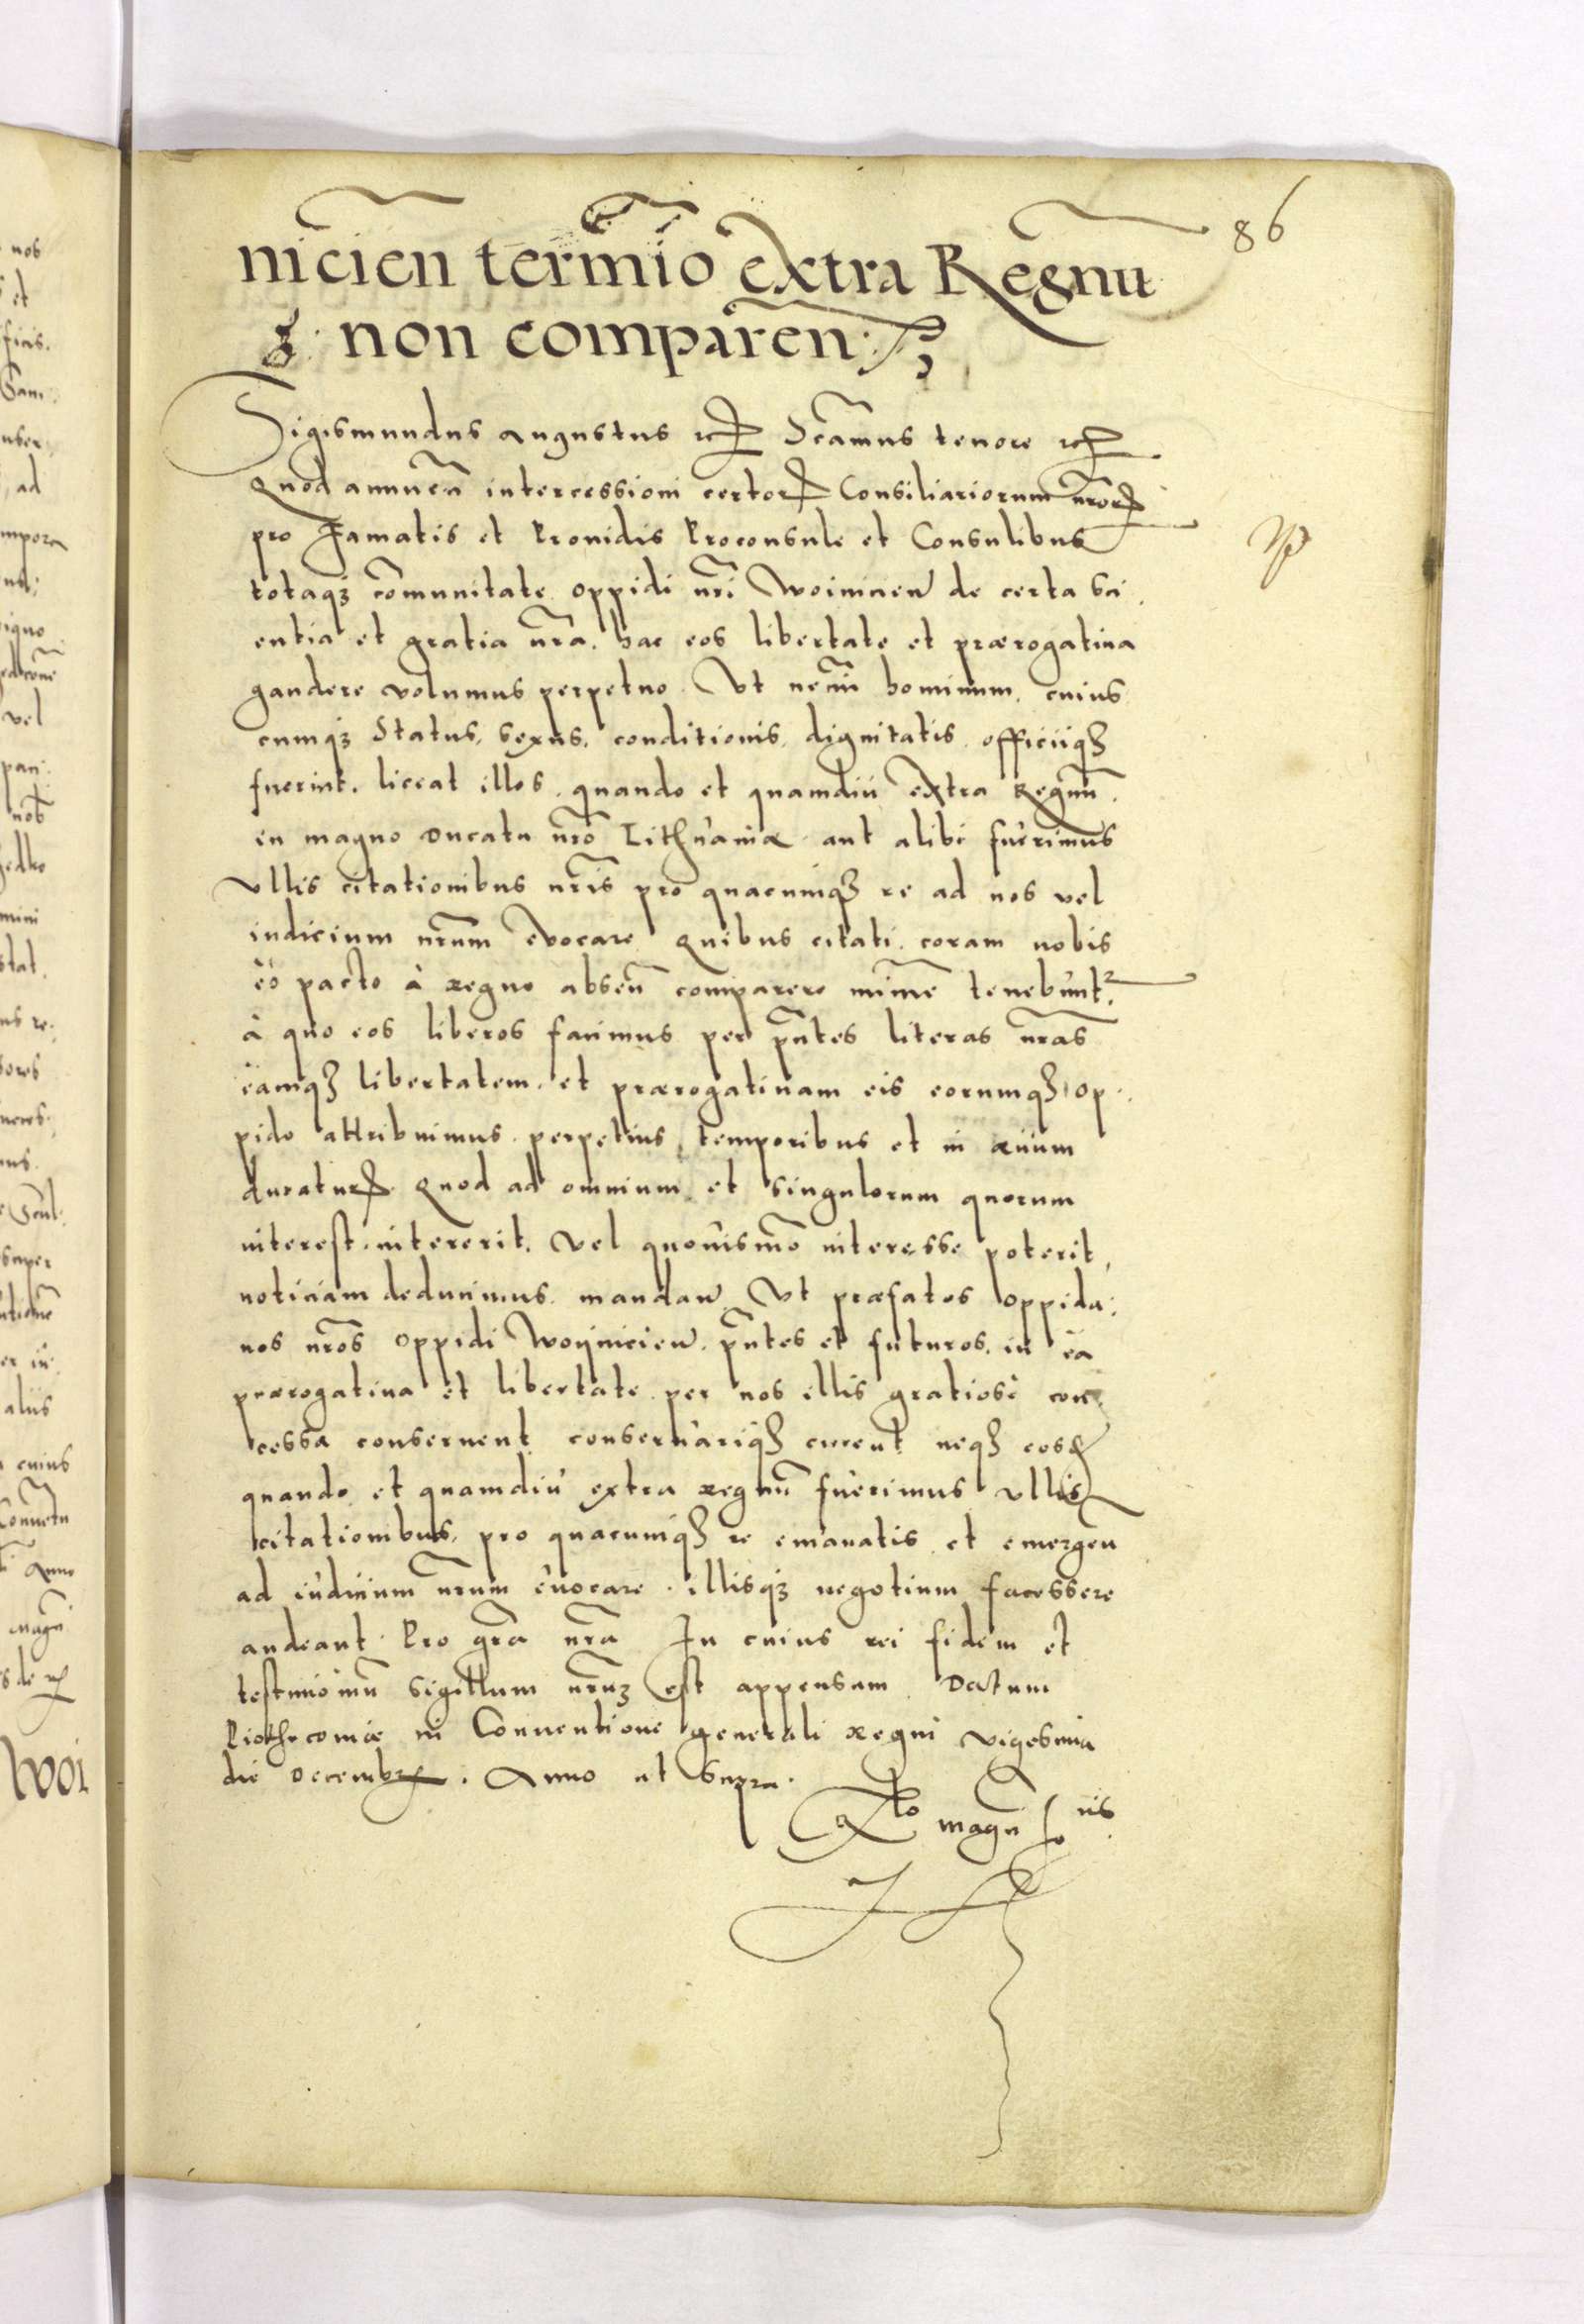 86
nicien termio extra Regnu
non comparen
Sigismundus Augustus etc Scamus tenore etc
Quod annuen intercessioni certor Consiliariorum nror
pro Famatis et Prouidis Proconsule et Consulibus
totaqз comunitate oppidi nri Woinicien de certa sci
entia et gratia nra. hac eos libertate et prærogatiua
gaudere volumus perpetuo. Ut nemini hominum, cuius
cumqз Status, sexus, conditionis, dignitatis officiiqз
fuerint, liceat illos, quando et quamdiu extra Regnu
in magno Ducatu nro Lithuaniæ aut alibi fuerimus
vllis citationibus nris pro quacumqз re ad nos vel
iudicium nrum euocare Quibus citati coram nobis
eo pacto à regno absen comparere minime tenebunt
à quo eos liberos facimus per pntes literas nras
eamqз libertatem et prærogatiuam eis eorumqз op
pido attribuimus perpetuis temporibus et in æuum
duratur Quod ad omnium et singulorum quorum
interest, intererit, vel quouismo interesse poterit,
noticiam deducimus mandan Ut præfatos oppida:
nos nros oppidi Woijnicien pntes et futuros in ea
prærogatiua et libertate per nos illis gratiose con
cessa conseruent conseruariqз curent neqз eosd
quando et quamdiu extra regnu fuerimus vllis
citationibus, pro quacumqз re emanatis et emergen
ad iudicium nrum euocare illisqз negotium facessere
audeant Pro gra nra In cuius rei fidem et
testimoniu sigillum nruз est appensum Datum
Piothrcoviæ in Conuentione generali regni vigesima
die Decembr. Anno ut supra.
Rlo magn
nos
et
ad
vel
pan
nob
mini
stat
aliis
cuius
Anno
magn
Woi